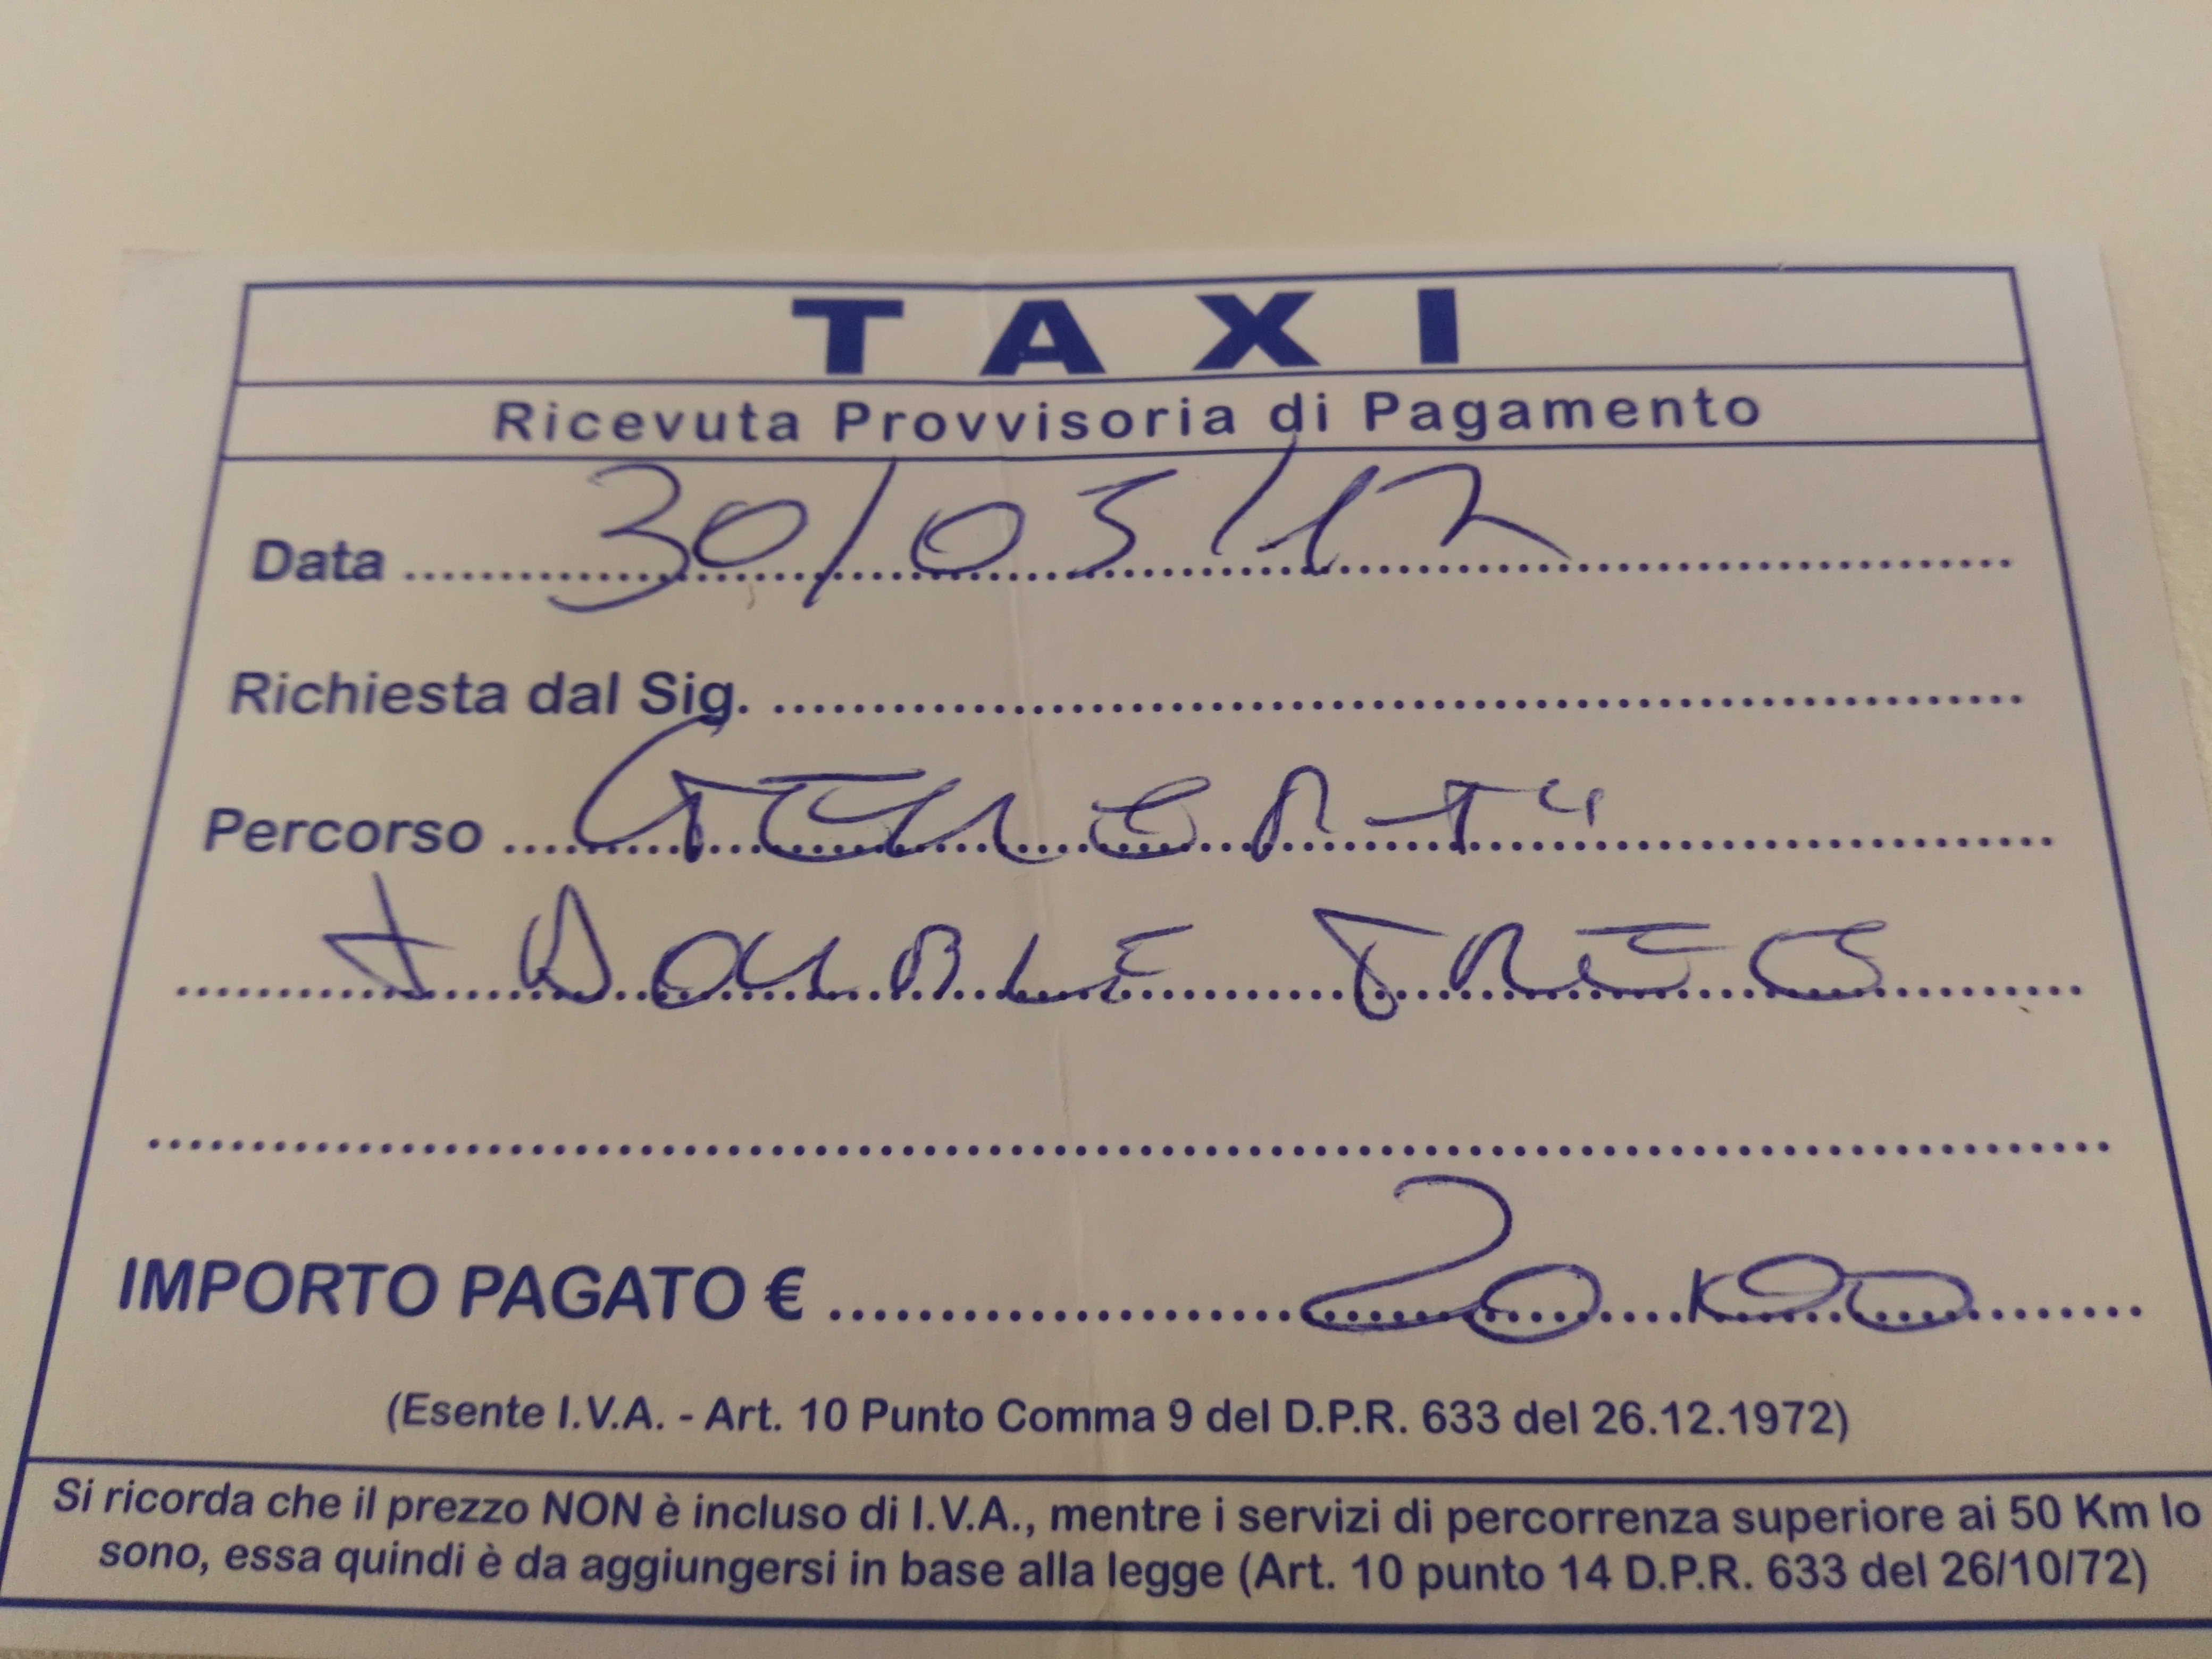 TAXI
Ricevuta Provvisoria di Pagamento
Data 30/03/17
Richiesta dal Sig.
Percorso
DOUBLE TREE
IMPORTO PAGATO € 20,00
(Esente I.V.A. - Art. 10 Punto Comma 9 del D.P.R. 633 del 26.12.1972)
Si ricorda che il prezzo NON è incluso di I.V.A., mentre i servizi di percorrenza superiore ai 50 Km lo
sono, essa quindi è da aggiungersi in base alla legge (Art. 10 punto 14 D.P.R. 633 del 26/10/72)